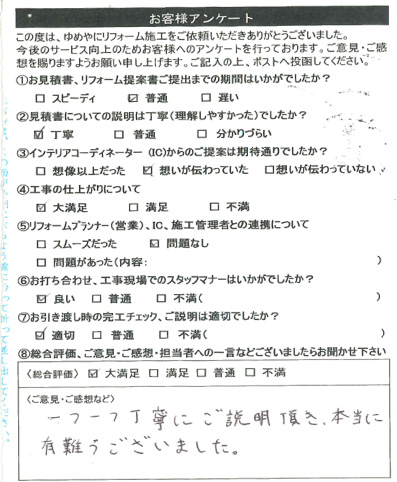 お客様アンケート
この度は、ゆめやにリフォーム施工をご依頼いただきありがとうございました。
今後のサービス向上のためお客様へのアンケートを行っております。ご意見・ご感
想を賜りますようお願い申し上げます。ご記入の上、ポストへ投函してください。
①お見積書、リフォーム提案書ご提出までの期間はいかがでしたか?
□ スピーディ ☑ 普通 □ 遅い
②見積書についての説明は丁寧(理解しやすかった)でしたか?
☑ 丁寧 □ 普通 □ 分かりづらい
③インテリアコーディネーター (IC)からのご提案は期待通りでしたか?
□ 想像以上だった ☑ 想いが伝わっていた □想いが伝わっていない
④工事の仕上がりについて
☑ 大満足 □ 満足 □ 不満
⑤リフォームプランナー(営業)、IC、施工管理者との連携について
□ スムーズだった ☑ 問題なし
□ 問題があった(内容: )
⑥お打ち合わせ、工事現場でのスタッフマナーはいかがでしたか?
☑ 良い □ 普通 □ 不満( )
⑦お引き渡し時の完工チェック、ご説明は適切でしたか?
☑ 適切 □ 普通 □ 不満( )
⑧総合評価、ご意見・ご感想・担当者への一言などございましたらお聞かせ下さい
〈総合評価〉 ☑ 大満足 □ 満足 □ 普通 □ 不満
〈ご意見・ご感想など〉
一つ一つ丁寧にご説明頂き、本当に
有難うございました。